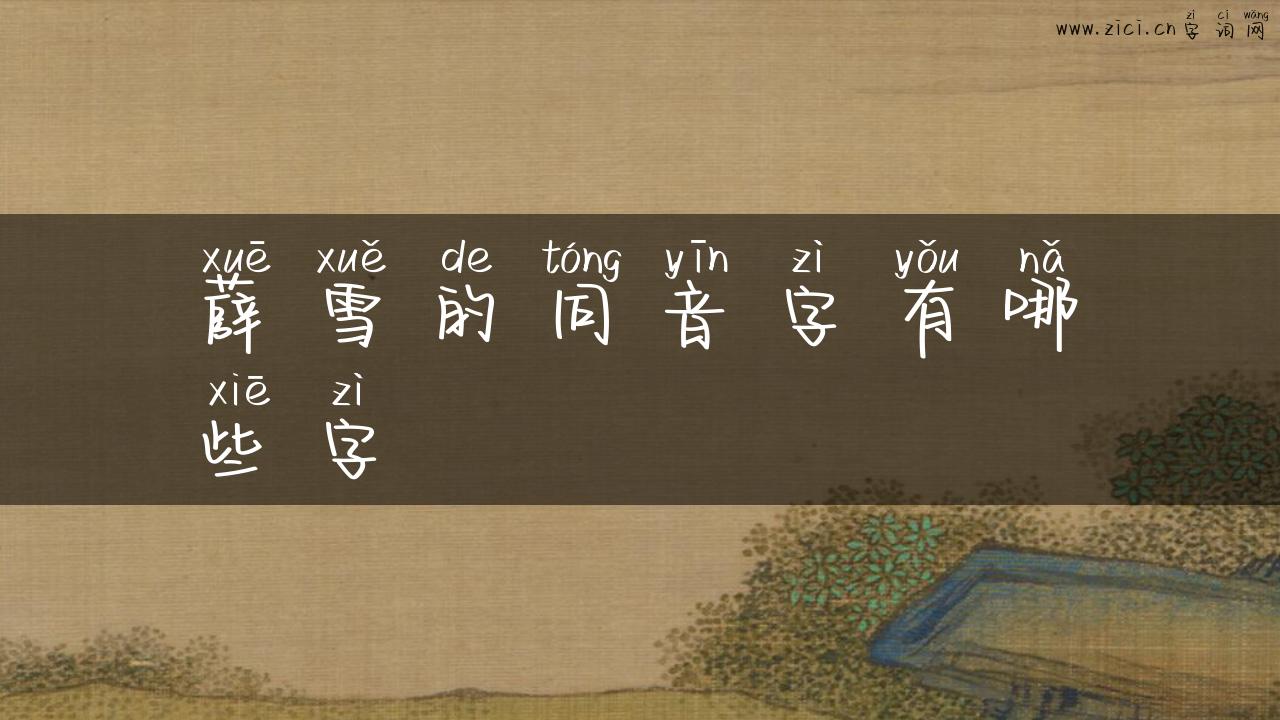 zì cí wǎng
www.zici.cn 字词网
xuē xuě de tóng yīn zì yǒu nǎ
薛雪的同音字有哪
xiē zì
些字